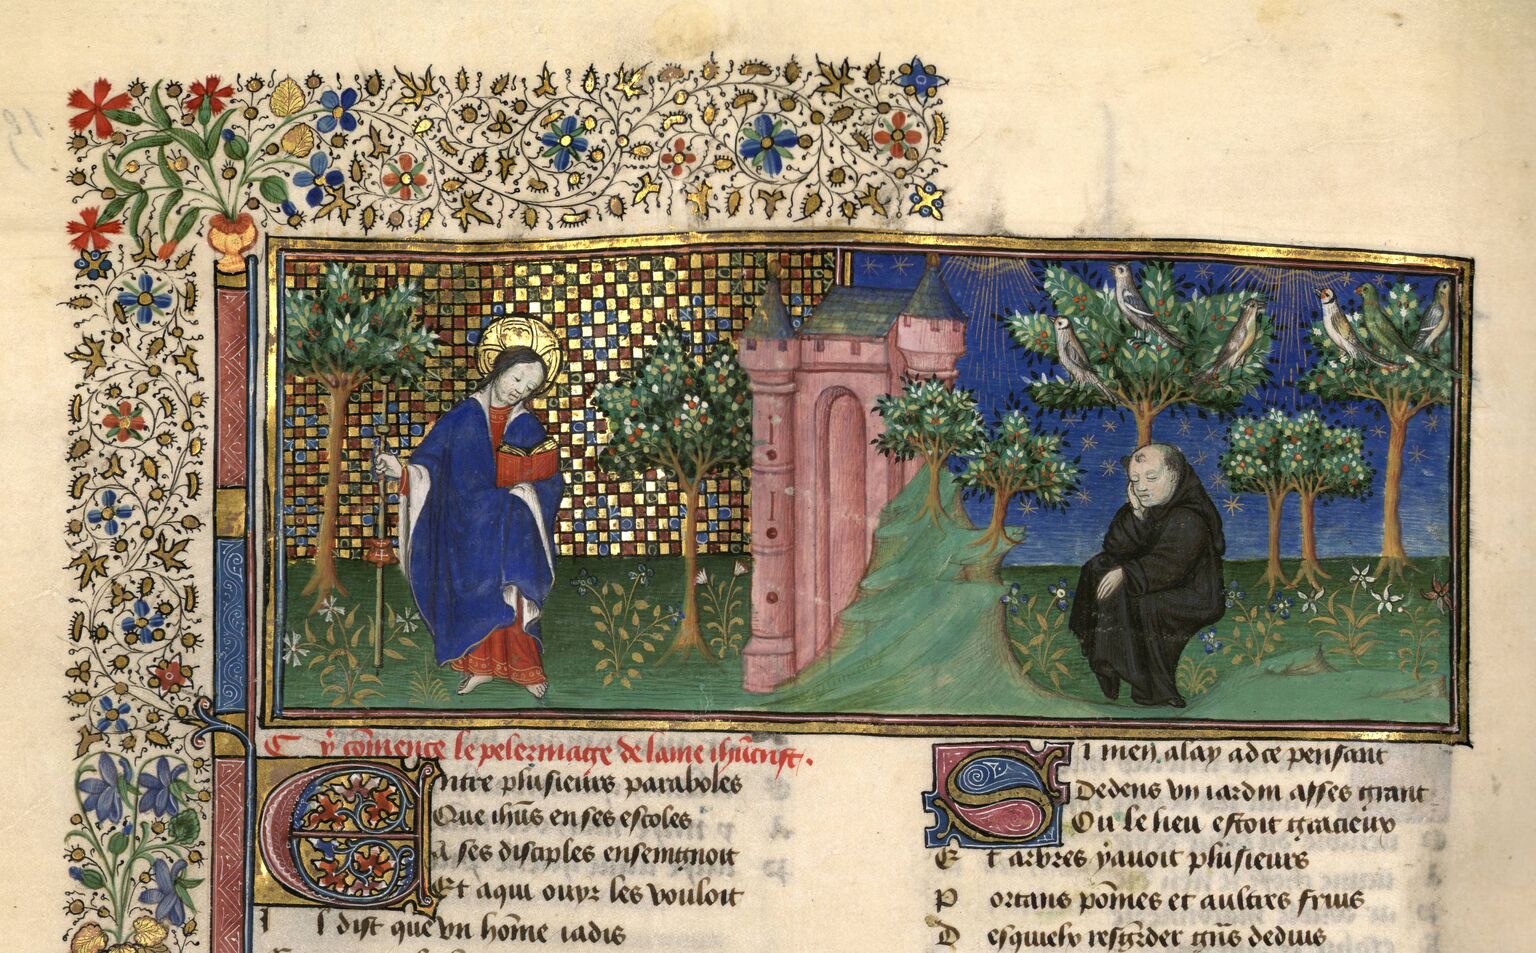 Cy cōmence le pelermage de lame ihūcrist.
Entre plusieurs paraboles
Que ihūs en ses escoles
A ses disciples enseingnoit
Et aqui ouyr les vouloit
Il dist que vn hōme iadis
Si men alay ad ce pensant
Dedens vn iardin asses grant
Ou le lieu estoit gracieux
Et arbres y auoit plusieurs
Portans pōmes et aultres fruis
Desquielx